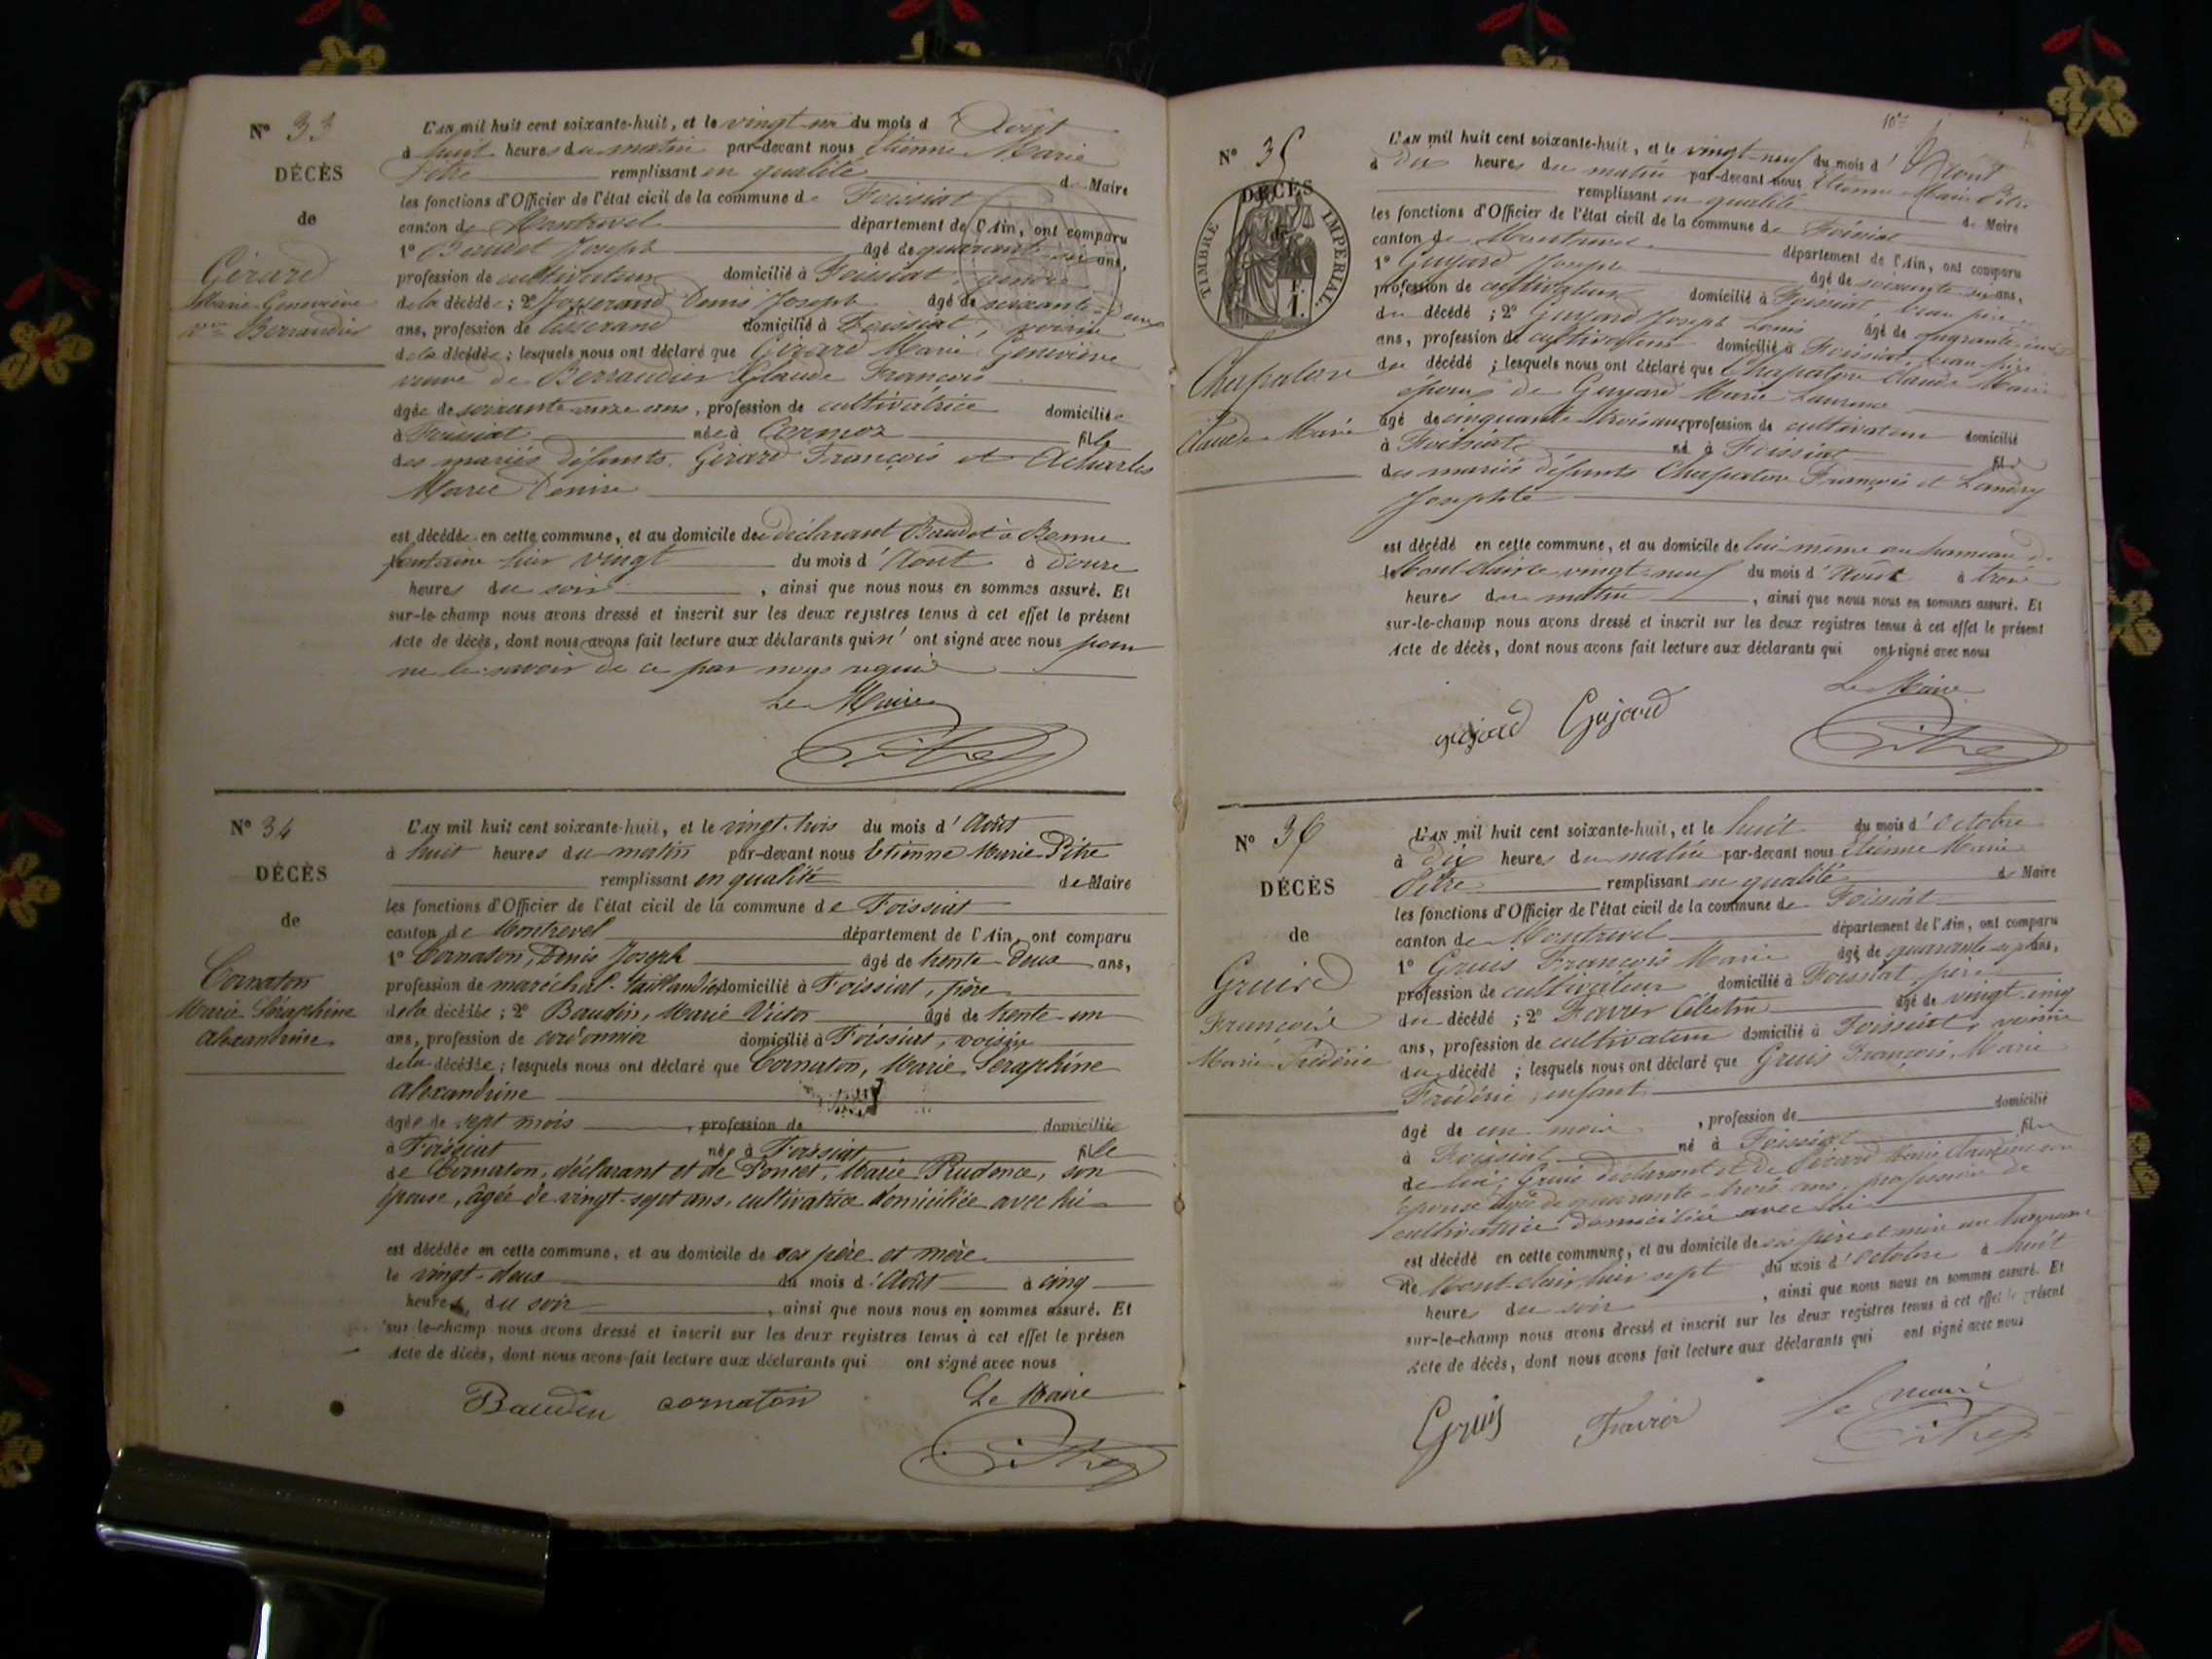 N° 33
DÉCÈS
de
Gérard
Marie Geneviève
Vve Berraudier
L'AN mil huit cent soixante-huit, et le vingt-un du mois d Août
à huit heures du matin par-devant nous Etienne Marie
Pitre remplissant en qualité de Maire
les fonctions d'Officier de l'état civil de la commune de Foissiat
canton de Montrevel département de l'Ain, ont comparu
1° Baudet Joseph âgé de quarante-six ans,
profession de cultivateur domicilié à Foissiat, gendre
de la décédée ; 2° Josserand Denis Joseph âgé de soixante-deux
ans, profession de tisserand domicilié à Foissiat, voisin
de la décédée ; lesquels nous ont déclaré que Gérard Marie Geneviève
veuve de Berraudier Claude François
âgée de soixante-onze ans, profession de cultivatrice domiciliée
à Foissiat née à Cormoz fille
des mariés défunts Gérard François et
Marie Denise
est décédée en cette commune, et au domicile de déclarant Baudet à Bonne
fontaine hier vingt du mois d'Août à douze
heures du soir , ainsi que nous nous en sommes assuré. Et
sur-le-champ nous avons dressé et inscrit sur les deux registres tenus à cet effet le présent
Acte de décès, dont nous avons fait lecture aux déclarants qui n'ont signé avec nous pour
ne le savoir de ce par nous requis
Le Maire
Pitre
N° 34
DÉCÈS
de
Cornaton
Marie Séraphine
Alexandrine
L'AN mil huit cent soixante-huit, et le vingt-trois du mois d'Août
à huit heures du matin par-devant nous Etienne Marie Pitre
remplissant en qualité de Maire
les fonctions d'Officier de l'état civil de la commune de Foissiat
canton de Montrevel département de l'Ain, ont comparu
1° Cornaton, Denis Joseph âgé de trente-deux ans,
profession de maréchal-taillandier domicilié à Foissiat, père
de la décédée ; 2° Baudin, Marie Victor âgé de trente-un
ans, profession de cordonnier domicilié à Foissiat, voisin
de la décédée ; lesquels nous ont déclaré que Cornaton, Marie Séraphine
Alexandrine
âgée de sept mois , profession de domiciliée
à Foissiat née à Foissiat fille
de Cornaton, déclarant et de Poncet, Marie Prudence, son
épouse, âgée de vingt-sept ans, cultivatrice domiciliée avec lui
est décédée en cette commune, et au domicile de ses père et mère
le vingt-deux du mois d'Août à cinq
heures du soir , ainsi que nous nous en sommes assuré. Et
sur-le-champ nous avons dressé et inscrit sur les deux registres tenus à cet effet le présen
Acte de décès, dont nous avons fait lecture aux déclarants qui ont signé avec nous
Baudin cornaton Le Maire
Pitre
N° 35
DÉCÈS
de
TIMBRE IMPÉRIAL
1 F.
Chapaton
Claude Marie
L'AN mil huit cent soixante-huit, et le vingt-neuf du mois d'Août
à dix heures du matin par-devant nous Etienne Marie Pitre
remplissant en qualité de Maire
les fonctions d'Officier de l'état civil de la commune de Foissiat
canton de Montrevel département de l'Ain, ont comparu
1° Guyard Joseph âgé de soixante-six ans,
profession de cultivateur domicilié à Foissiat, beau père
du décédé ; 2° Guyard Joseph Louis âgé de quarante
ans, profession de cultivateur domicilié à Foissiat, beau frère
du décédé ; lesquels nous ont déclaré que Chapaton Claude Marie
époux de Guyard Marie Laurence
âgé de cinquante-trois ans, profession de cultivateur domicilié
à Foissiat né à Foissiat fils
des mariés défunts Chapaton François et Landry
Josephte
est décédé en cette commune, et au domicile de lui-même au hameau de
Montclair le vingt-neuf du mois d'Août à trois
heures du matin , ainsi que nous nous en sommes assuré. Et
sur-le-champ nous avons dressé et inscrit sur les deux registres tenus à cet effet le présent
Acte de décès, dont nous avons fait lecture aux déclarants qui ont signé avec nous
Le Maire
guyard Guyard Pitre
N° 36
DÉCÈS
de
François
Marie Frédéric
L'AN mil huit cent soixante-huit, et le huit du mois d'Octobre
à dix heures du matin par-devant nous Etienne Marie
Pitre remplissant en qualité de Maire
les fonctions d'Officier de l'état civil de la commune de Foissiat
canton de Montrevel département de l'Ain, ont comparu
1° Gruis François Marie âgé de quarante-sept ans,
profession de cultivateur domicilié à Foissiat, père
du décédé ; 2° Favier Célestin âgé de vingt-cinq
ans, profession de cultivateur domicilié à Foissiat, voisin
du décédé ; lesquels nous ont déclaré que Gruis François Marie
Frédéric, enfant
âgé de un mois , profession de domicilié
à Foissiat né à Foissiat fils
de lui, Gruis déclarant et de Marie Claudine son
épouse âgée de quarante-trois ans, profession de
cultivatrice domiciliée avec lui
est décédé en cette commune, et au domicile de ses père et mère au hameau
de Montclair hier sept du mois d'Octobre à huit
heures du soir , ainsi que nous nous en sommes assuré. Et
sur-le-champ nous avons dressé et inscrit sur les deux registres tenus à cet effet le présent
Acte de décès, dont nous avons fait lecture aux déclarants qui ont signé avec nous
Gruis Favier le maire
Pitre